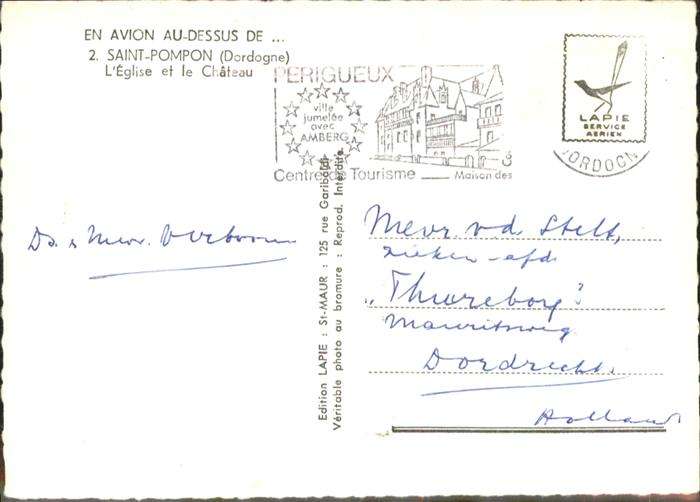 EN AVION AU-DESSUS DE ...
2. SAINT-POMPON (Dordogne)
L'Église et le Château
PERIGUEUX
ville
jumelée
avec
AMBERG
Centre de Tourisme
Maison des
LAPIE
SERVICE
AERIEN
DORDOGN
Edition LAPIE : St-MAUR : 125 rue Garibaldi
Véritable photo au bromure : Reprod. Interdite.
Ds. & Mevr. Verboom
Mevr. v.d. Stelt,
zieken-afd.
„Thureborg"
Mauritsweg
Dordrecht.
Holland